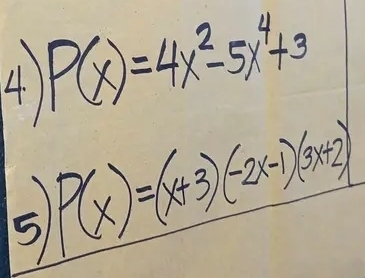 4.) P(x) = 4x² - 5x⁴ + 3
5) P(x) = (x+3) (-2x-1) (3x+2)